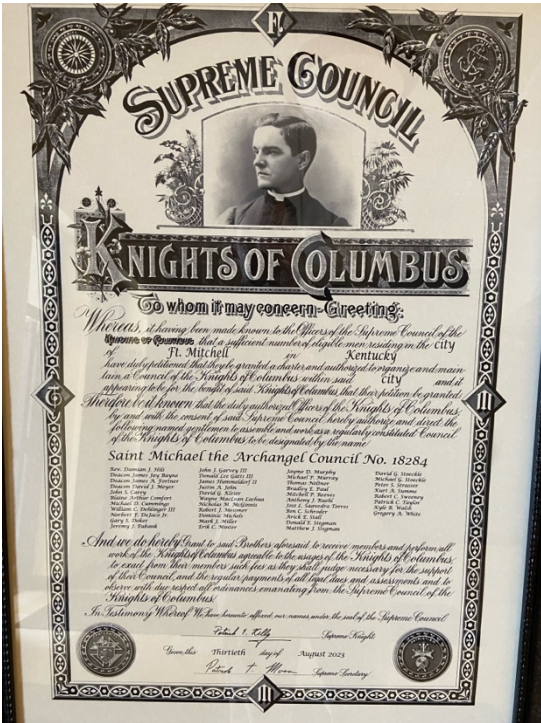 F.
SUPREME COUNCIL
KNIGHTS OF COLUMBUS
To whom it may concern - Greeting:
Whereas, it having been made known to the Officers of the Supreme Council of the
Knights of Columbus that a sufficient number of eligible men residing in the city
of Ft. Mitchell in Kentucky
have duly petitioned that they be granted a charter and authorized to organize and main-
tain a Council of the Knights of Columbus within said city and it
appearing to be for the benefit of said Knights of Columbus that their petition be granted
Therefore be it known that the duly authorized Officers of the Knights of Columbus,
by and with the consent of said Supreme Council, hereby authorize and direct the
following named gentlemen to assemble and work as a regularly constituted Council
of the Knights of Columbus to be designated by the name
Saint Michael the Archangel Council No. 18284
Rev. Damian J. Hils
Deacon James Jay Bayne
Deacon James A. Fortner
Deacon David J. Meyer
John S. Carey
Blaine Arthur Comfort
Michael D. Cummings
William C. Dehlinger III
Norbert F. DeJaco Jr.
Gary S. Doker
Jeremy J. Eubank
John J. Garvey III
Donald Lee Gatz III
James Hummeldorf II
Justin A. John
David G. Kleier
Wayne MacLean Cochua
Nicholas M. McGinnis
Robert J. Messmer
Dominic Nichols
Mark J. Miller
Erik C. Nineier
Jayne D. Murphy
Michael P. Murray
Thomas Nilhoe
Bradley E. Paul
Mitchell P. Reeves
Anthony J. Ruehl
Jose J. Saavedra Torres
Ben C. Schroder
Arick E. Stall
Donald E. Stegman
Matthew J. Stegman
David G. Stoeckle
Michael G. Stoeckle
Peter S. Strasser
Kurt A. Summe
Robert C. Sweeney
Patrick C. Taylor
Kyle B. Walsh
Gregory A. White
And we do hereby Grant to said Brothers aforesaid to receive members and perform all
work of the Knights of Columbus agreeable to the usages of the Knights of Columbus,
to exact from their members such fees as they shall judge necessary for the support
of their Council, and the regular payments of all legal dues and assessments and to
observe with due respect all ordinances emanating from the Supreme Council of the
Knights of Columbus.
In Testimony Whereof We have hereunto affixed our names under the seal of the Supreme Council
Patrick E. Kelly Supreme Knight
Given this Thirtieth day of August 2023
Supreme Secretary